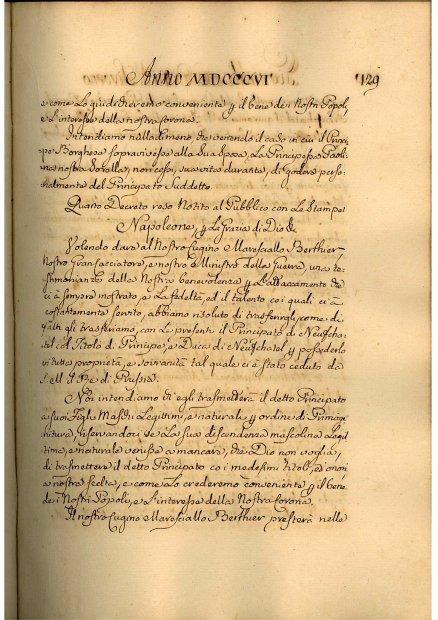 ANNO MDCCCVI 129
e come lo giudicheremo conveniente p il bene de i Nostri Popoli,
e l'interesse della nostra corona.
Intendiamo nulla dimeno che venendo il caso in cui il Princi=
pe Borghese sopravivesse alla sua Sposa, la Principessa Paoli=
na nostra Sorella, non cessi, sua vita durante, di godere perso=
nalmente del Principato suddetto.
Quarto Decreto reso Notito al Pubblico con le Stampe
Napoleone, p la Grazia di Dio &c
Volendo dare al nostro Cugino Maresciallo Berthier
Nostro Gran Cacciatore, e nostro Ministro della Guerra, una te=
stimonianza della Nostra benevolenza p l'attaccamento che
ci à sempre mostrato, e la fedeltà, ed il talento co i quali ci à
costantemente servito, abbiamo risoluto di trasferirgli, come di
fatti gli trasferiamo, con le presenti il Principato di Neufscha=
tel col Titolo di Principe, e Duca di Neufschatel p possederlo
in tutta proprietà, e sovranità tal quale ci è stato ceduto da
S. M. il Re di Prussia.
Noi intendiamo ch'egli trasmetterà il detto Principato
a suoi Figli Maschi Legitimi, e naturali p ordine di Primoge=
nitura, riservandoci se la sua discendenza mascolina Legit=
tima, e naturale venisse a mancare, che Dio non voglia,
di trasmettere il detto Principato co i medesimi titoli, e
a nostra scelta, e come lo crederemo conveniente p il bene
de i Nostri Popoli, e l'interesse della Nostra Corona.
Il nostro Cugino Maresciallo Berthier presterà nelle